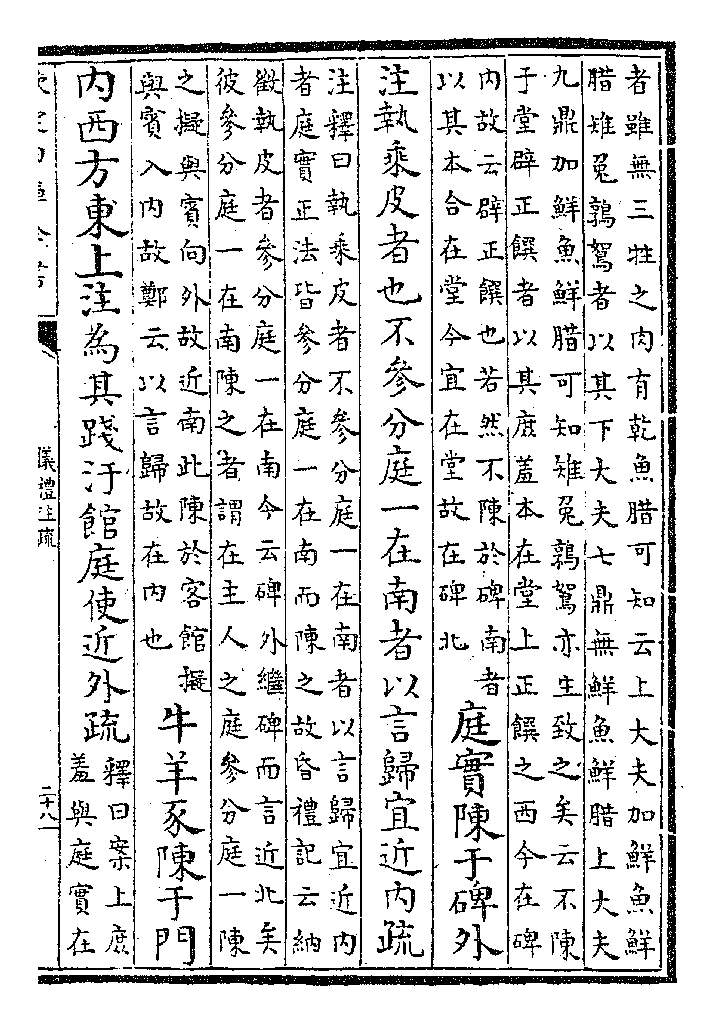 者雖無三牲之肉有乾魚腊可知云上大夫加鮮魚鮮
腊雉兔鶉鴽者以其下大夫七鼎無鮮魚鮮腊上大夫
九鼎加鮮魚鮮腊可知雉兔鶉鴽亦生致之矣云不陳
于堂辟正饌者以其庶羞本在堂上正饌之西今在碑
内故云辟正饌也若然不陳於碑南者
以其本合在堂今宜在堂故在碑北
庭實陳于碑外
注執乘皮者也不參分庭一在南者以言歸宜近内疏
注釋曰執乘皮者不參分庭一在南者以言歸宜近内
者庭實正法皆參分庭一在南而陳之故昏禮記云納
徵執皮者參分庭一在南今云碑外繼碑而言近北矣
彼參分庭一在南陳之者謂在主人之庭參分庭一陳
之擬與賓向外故近南此陳於客館擬
與賓入内故鄭云以言歸故在内也
牛羊豕陳于門
内西方東上注為其踐汙館庭使近外疏
釋曰案上庶
羞與庭實在
儀禮注疏
二十八